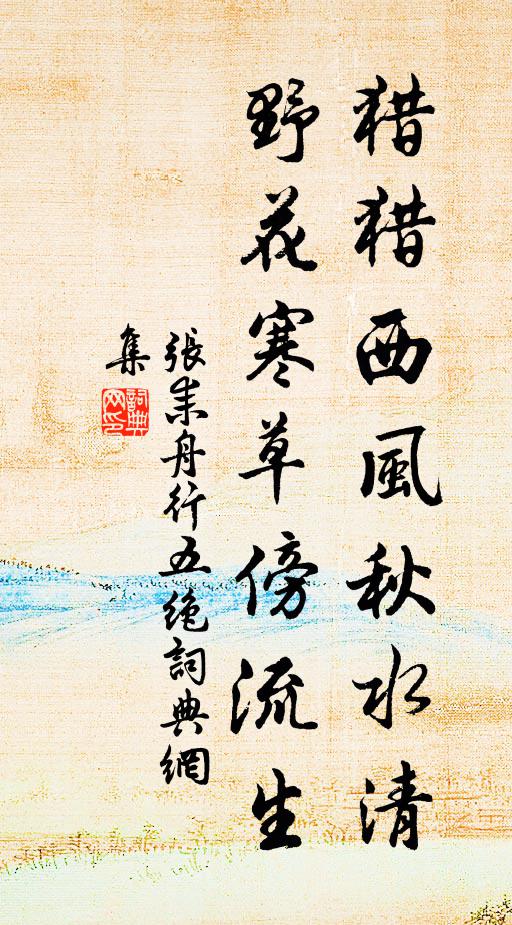 猎猎西風秋水清
野花寒草傍流生
張耒舟行五絶詞典網
集
詞典
网印